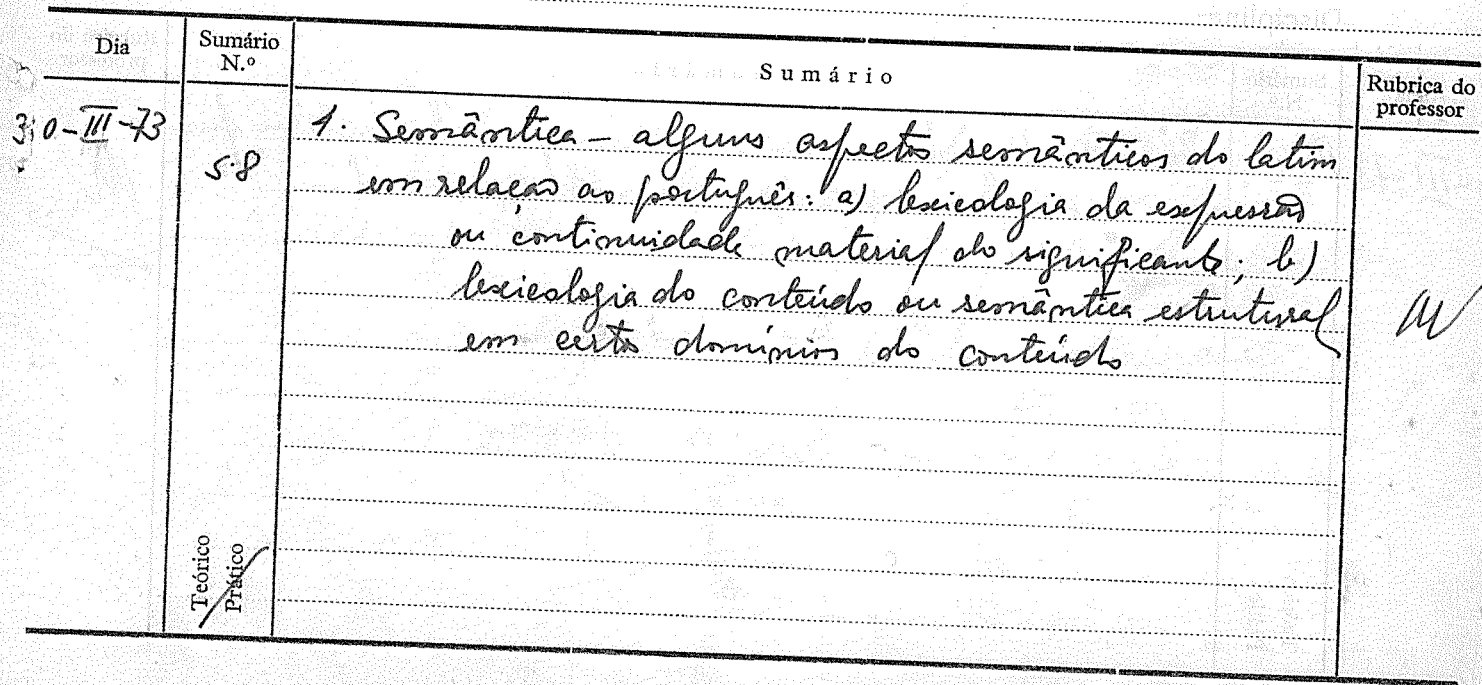 Dia
Sumário
N.º
Sumário
Rubrica do
professor
30-III-73
58
1. Semântica – alguns aspectos semânticos do latim
em relação ao português: a) lexicologia da expressão
ou continuidade material do significante; b)
lexicologia do conteúdo ou semântica estrutural
em certos domínios do conteúdo
Teórico
Prático